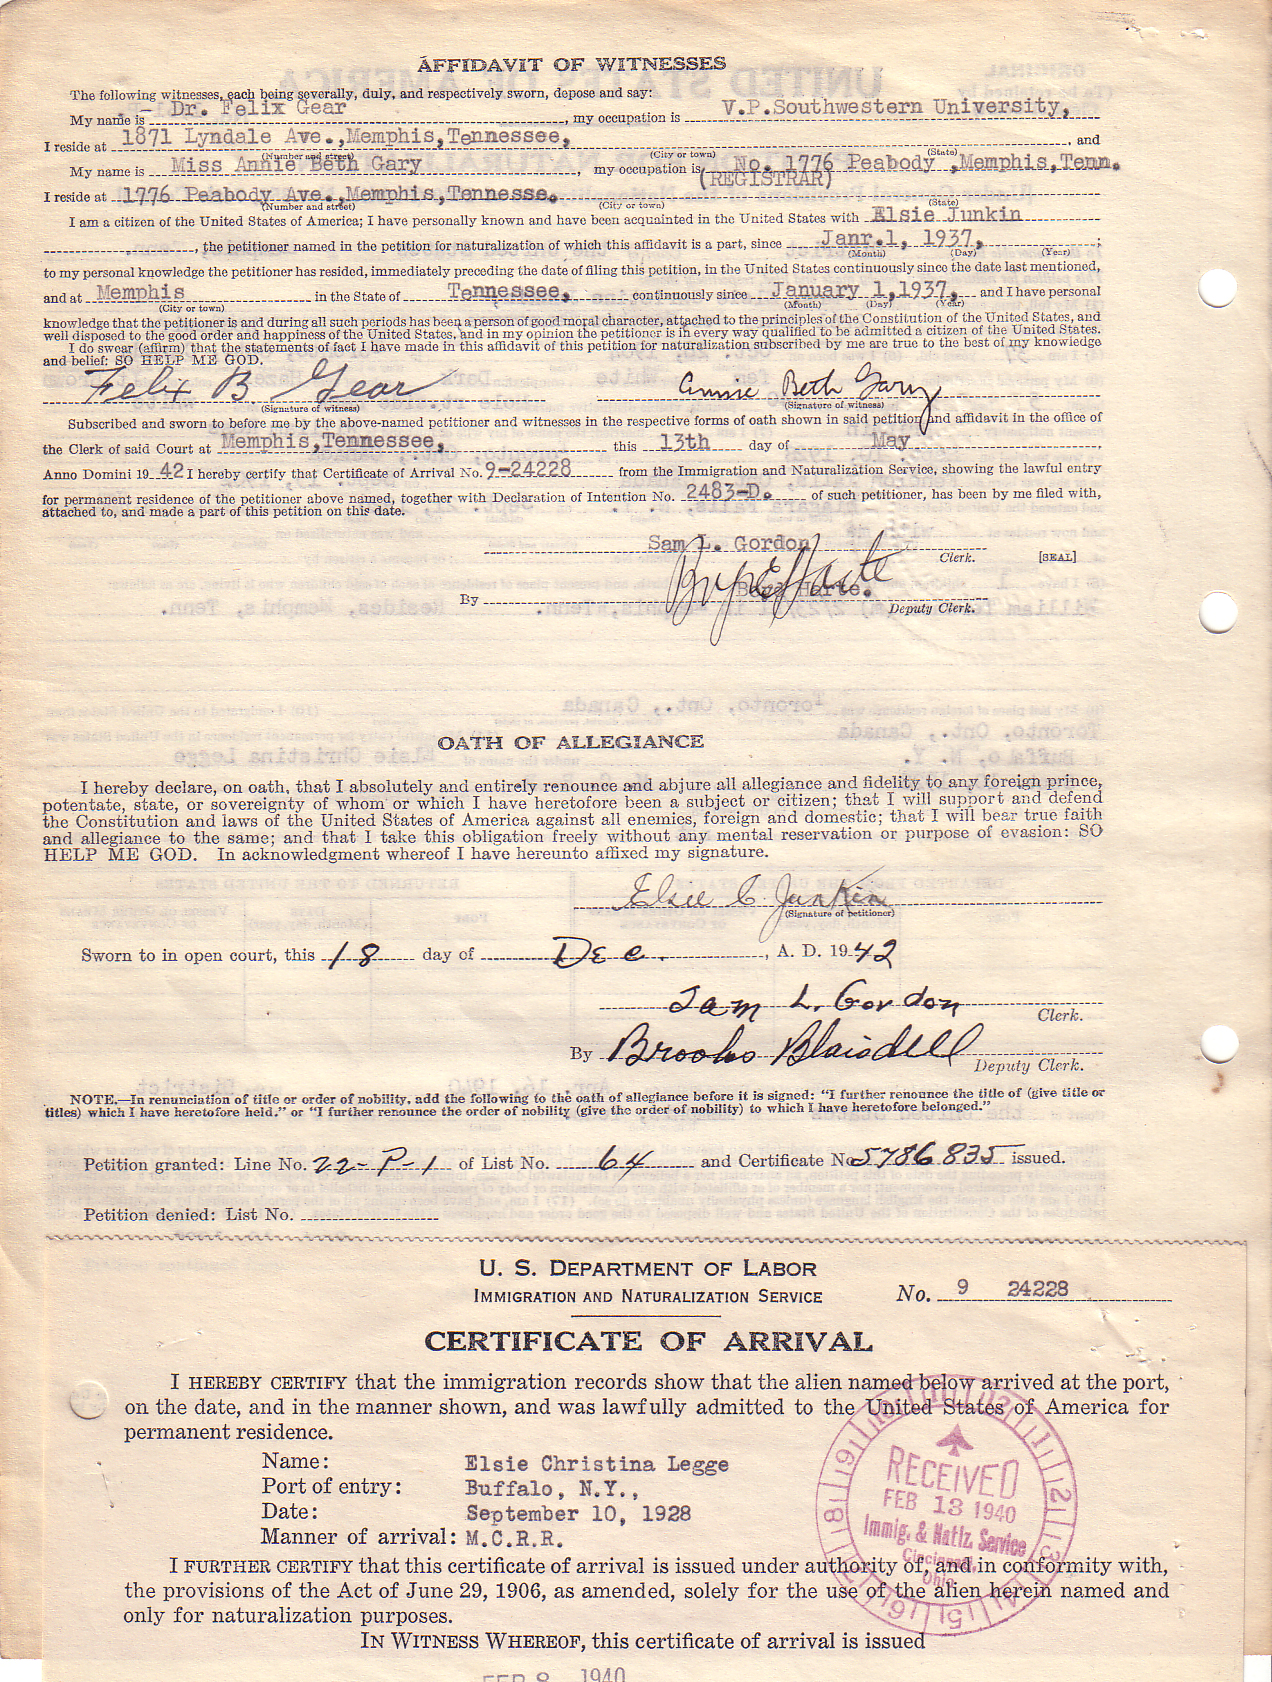 AFFIDAVIT OF WITNESSES
The following witnesses, each being severally, duly, and respectively sworn, depose and say:
My name is Dr. Felix Gear, my occupation is V.P.Southwestern University,
I reside at 1871 Lyndale Ave.,Memphis,Tennessee, and
(Number and street) (City or town) (State)
My name is Miss Annie Beth Gary, my occupation is No. 1776 Peabody ,Memphis,Tenn.
(REGISTRAR)
I reside at 1776 Peabody Ave.,Memphis,Tennesse.
(Number and street) (City or town) (State)
I am a citizen of the United States of America; I have personally known and have been acquainted in the United States with Elsie Junkin
, the petitioner named in the petition for naturalization of which this affidavit is a part, since Janr.1, 1937, ;
(Month) (Day) (Year)
to my personal knowledge the petitioner has resided, immediately preceding the date of filing this petition, in the United States continuously since the date last mentioned,
and at Memphis in the State of Tennessee, continuously since January 1,1937, and I have personal
(City or town) (Month) (Day) (Year)
knowledge that the petitioner is and during all such periods has been a person of good moral character, attached to the principles of the Constitution of the United States, and
well disposed to the good order and happiness of the United States, and in my opinion the petitioner is in every way qualified to be admitted a citizen of the United States.
I do swear (affirm) that the statements of fact I have made in this affidavit of this petition for naturalization subscribed by me are true to the best of my knowledge
and belief: SO HELP ME GOD.
Felix B. Gear Annie Beth Gary
(Signature of witness) (Signature of witness)
Subscribed and sworn to before me by the above-named petitioner and witnesses in the respective forms of oath shown in said petition and affidavit in the office of
the Clerk of said Court at Memphis,Tennessee, this 13th day of May,
Anno Domini 19 42 I hereby certify that Certificate of Arrival No. 9-24228 from the Immigration and Naturalization Service, showing the lawful entry
for permanent residence of the petitioner above named, together with Declaration of Intention No. 2483-D. of such petitioner, has been by me filed with,
attached to, and made a part of this petition on this date.
Sam L. Gordon
Clerk. [SEAL]
By Harte.
Deputy Clerk.
OATH OF ALLEGIANCE
I hereby declare, on oath, that I absolutely and entirely renounce and abjure all allegiance and fidelity to any foreign prince,
potentate, state, or sovereignty of whom or which I have heretofore been a subject or citizen; that I will support and defend
the Constitution and laws of the United States of America against all enemies, foreign and domestic; that I will bear true faith
and allegiance to the same; and that I take this obligation freely without any mental reservation or purpose of evasion: SO
HELP ME GOD. In acknowledgment whereof I have hereunto affixed my signature.
Elsie C. Junkin
(Signature of petitioner)
Sworn to in open court, this 18 day of Dec., A. D. 19 42
Sam L. Gordon
Clerk.
By Brooks Blaisdell
Deputy Clerk.
NOTE.—In renunciation of title or order of nobility, add the following to the oath of allegiance before it is signed: "I further renounce the title of (give title or
titles) which I have heretofore held." or "I further renounce the order of nobility (give the order of nobility) to which I have heretofore belonged."
Petition granted: Line No. 22-P-1 of List No. 64 and Certificate No 5786835 issued.
Petition denied: List No.
U. S. DEPARTMENT OF LABOR
IMMIGRATION AND NATURALIZATION SERVICE
No. 9 24228
CERTIFICATE OF ARRIVAL
I HEREBY CERTIFY that the immigration records show that the alien named below arrived at the port,
on the date, and in the manner shown, and was lawfully admitted to the United States of America for
permanent residence.
Name: Elsie Christina Legge
Port of entry: Buffalo, N.Y.,
Date: September 10, 1928
Manner of arrival: M.C.R.R.
RECEIVED
FEB 13 1940
Immig. & Natlz. Service
Cincinnati,
Ohio
I FURTHER CERTIFY that this certificate of arrival is issued under authority of, and in conformity with,
the provisions of the Act of June 29, 1906, as amended, solely for the use of the alien herein named and
only for naturalization purposes.
IN WITNESS WHEREOF, this certificate of arrival is issued
FEB 8 1940